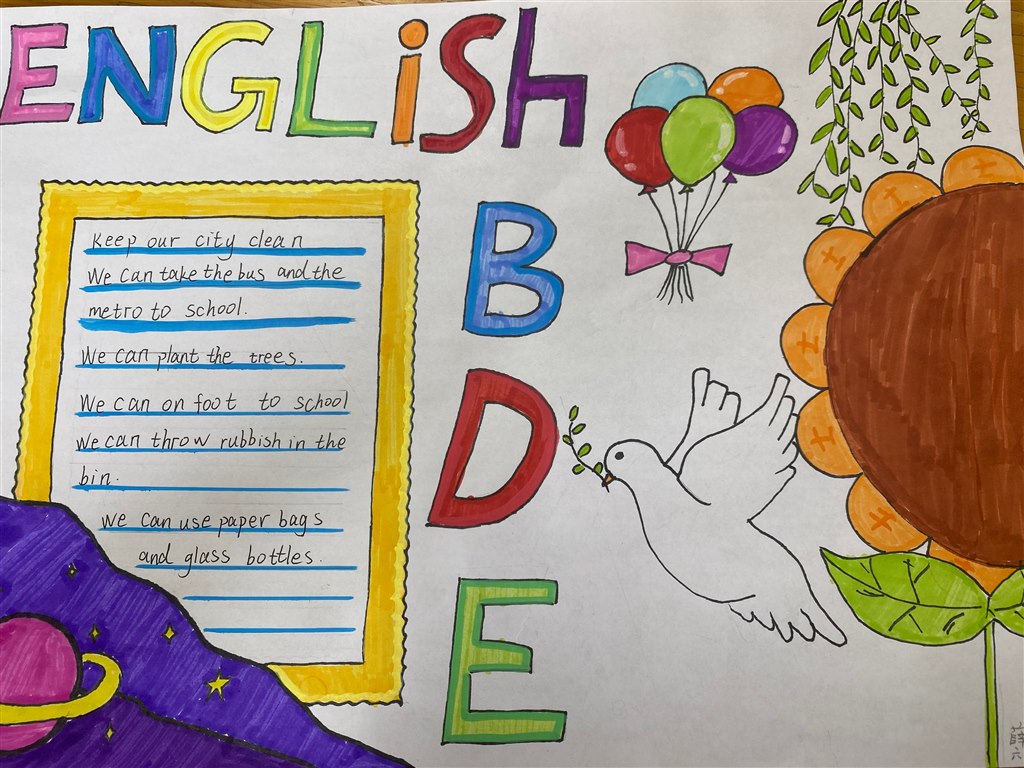 ENGLiSh
Keep our city clean
We can take the bus and the
metro to school.
We can plant the trees.
We can on foot to school
We can throw rubbish in the
bin.
We can use paper bags
and glass bottles.
B
D
E